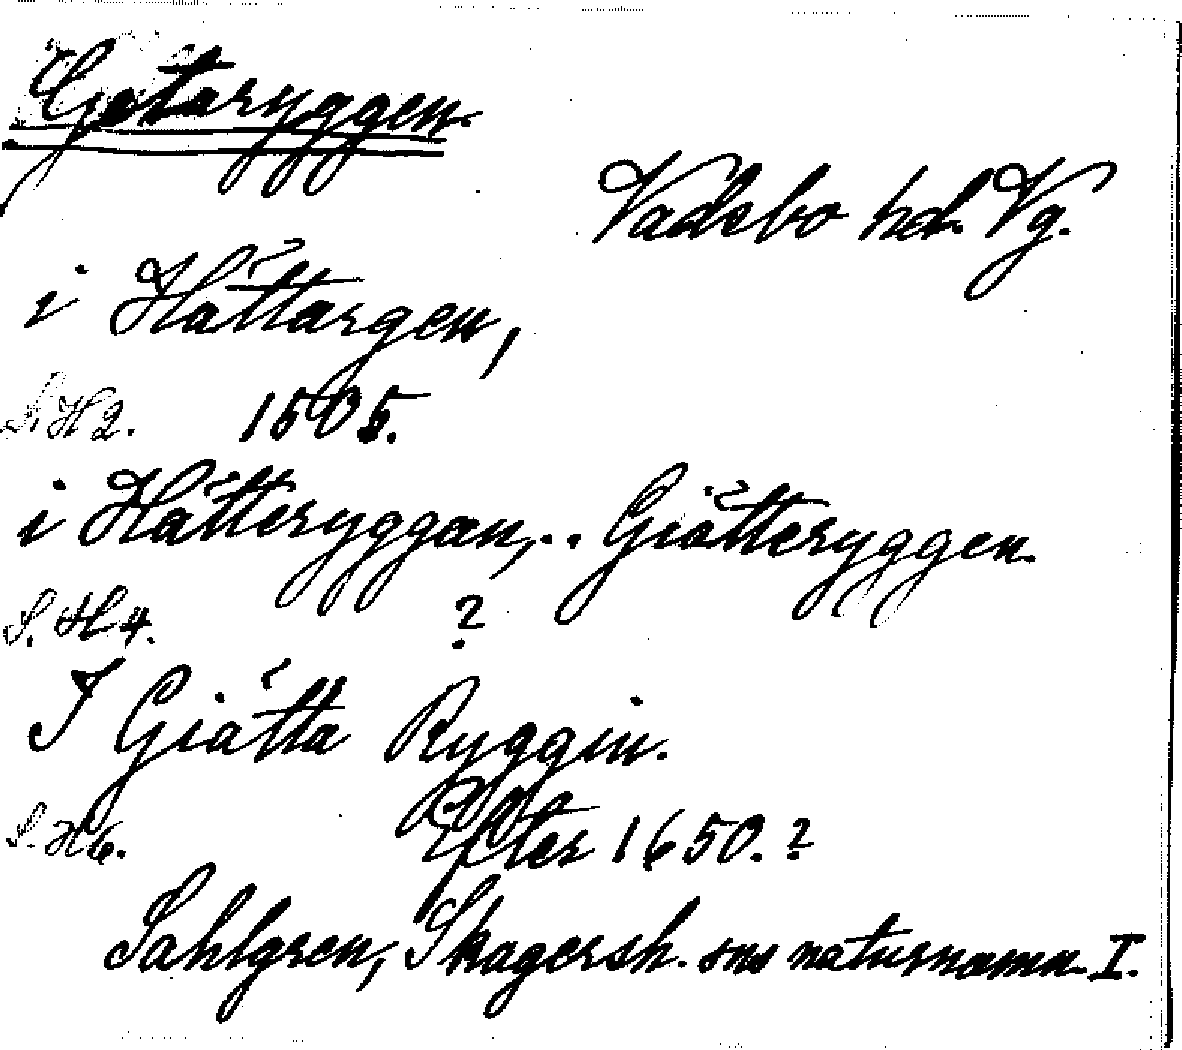 Getaryggen.
Vadsbo hd. Vg.
i Håttargen,
S. H 2. 1505.
i Hätteryggan, .. Giätteryggen.
S. H 4. ?
I Giätta Ryggin.
S. H 6. Efter 1650. ?
Sahlgren, Skagersh. sns naturnamn I.